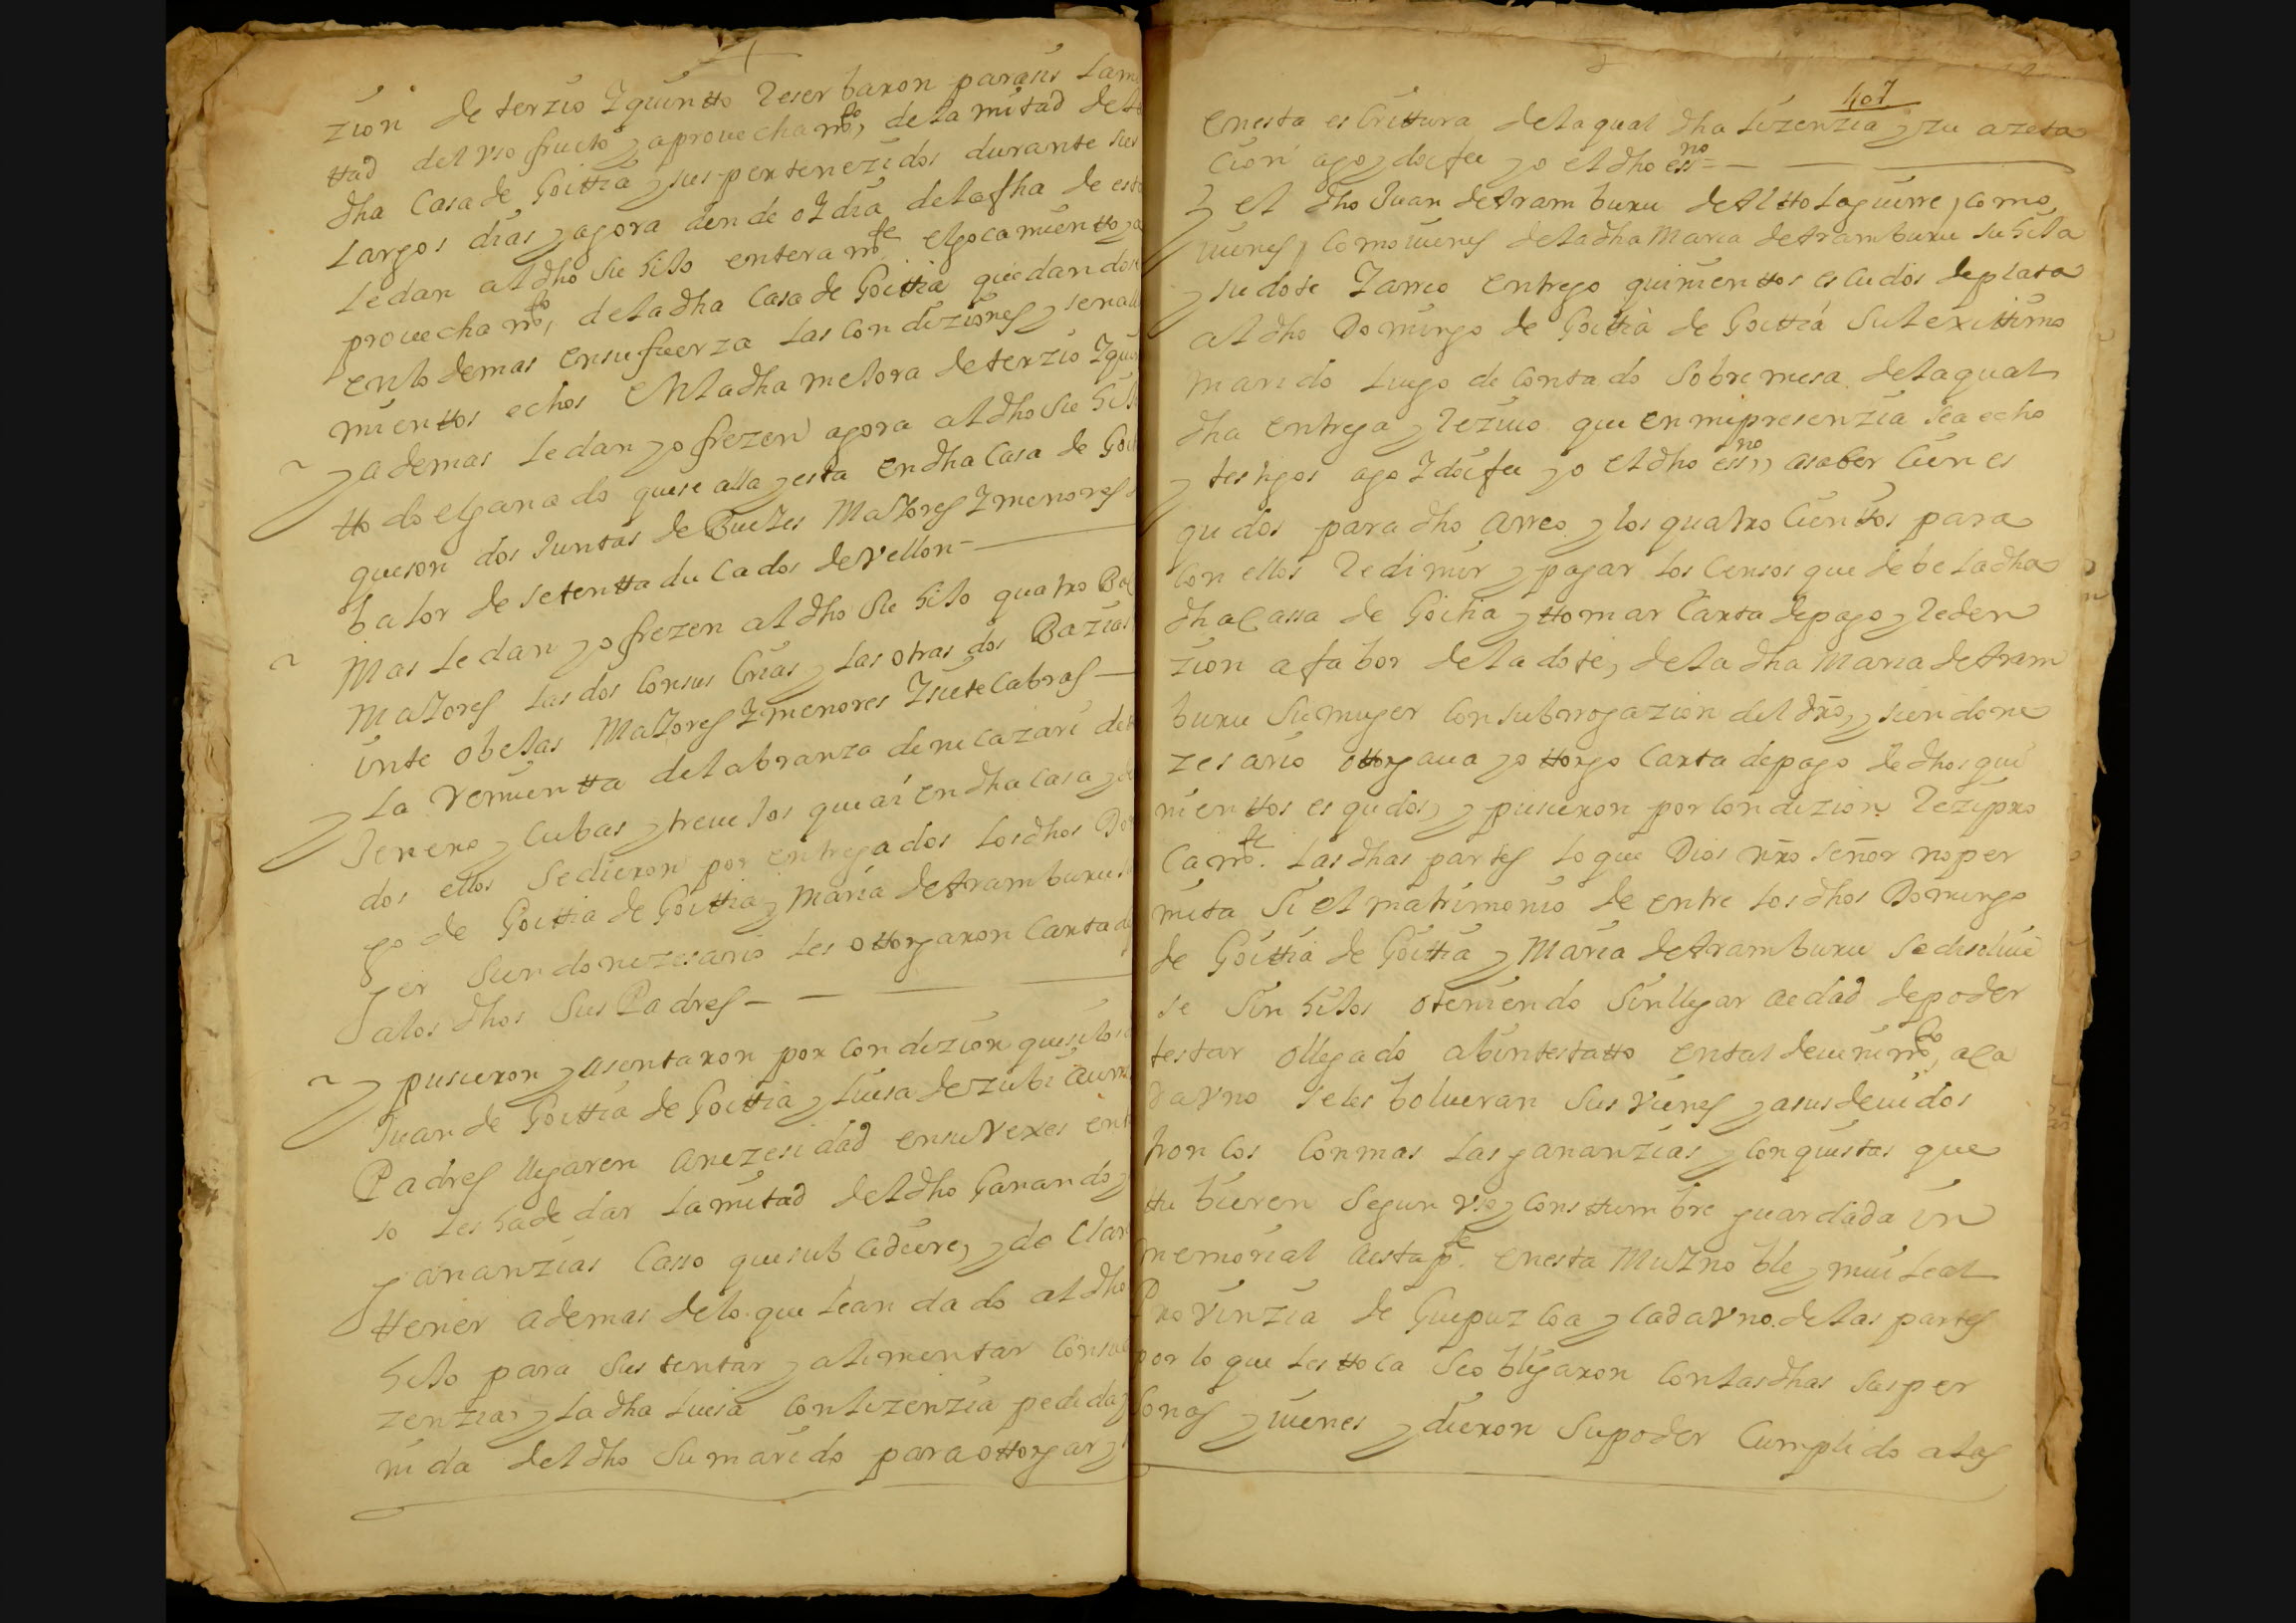 zion de terzio Y quintto Reserbaron parasus Lami
ttad del vso fructo y aprouechamto, de la mitad de la
dha Casa de Goittia y sus pertenezidos durante sus
Largos dias y agora dende oy dia de la fha de esta
Le dan al dho Su hijo enteramte el gocamientto y a
prouechamto, de la dha Casa de Goittia quedandose
en lo demas en su fuerza Las Condiziones y senala
mienttos echos En la dha mejora de terzio Y quin
y ademas Le dan y ofrezen agora al dho Su hijo
ttodo el ganado que se alla y esta En dha Casa de Goi
que son dos Juntas de Bueyes Mayores Y menores
balor de setentta ducados de Vellon
Mas Le dan y ofrezen al dho Su hijo quatro Bac
Mayores Las dos Con sus Crias y Las otras dos Bazias
vinte obejas Mayores Y menores Y siete Cabras
y La Remientta de labranza de
Jenero y Cubas y treuejos que ai en dha Casa y de
dos ellos Se dieron por entregados Los dhos Do
go de Goittia de Goittia y Maria de Aramburu su
ger Siendo nezesario Les ottorgaron Carta de
a los dhos Sus Padres
y pusieron y asentaron por Condizion que si los
Juan de Goittia de Goittia y Luisa de Zubi
Padres llegaren a nezesidad en su Vexes en
so Les ha de dar La mitad del dho Ganando y
gananzias Casso que sub cediere, y de Clar
ttener ademas de lo que Lean dado al dho
hijo para Sustentar y alimentar Con su
zenzia, y La dha Luisa Con lizenzia pedida y
nida del dho Su marido para ottorgar y
407
En esta escrittura de la qual dha Lizenzia y su azeta
Cion ago y doi fee yo el dho essno =
Y el dho Juan de Aramburu de Altto Laguirre, como
uienes, Como uienes de la dha Maria de Aramburu Su hija
y su dote Y arreo Entrego quinienttos escudos de plata
al dho Domingo de Goittia de Goittia Su lexittimo
marido Luego de Contado Sobre mesa de la qual
dha Entrega y Reziuo que en mi presenzia sea echo
y testigos ago Y doi fee yo el dho essno, asaber Cien es
qudos para dho arreo y los quatro Cienttos para
Con ellos Redimir y pagar Los Censos que debe La dha
dha Cassa de Goitia y ttomar Carta de pago y Reden
zion a fabor de la dote, de la dha Maria de Aram
buru Su muger Con subrrogazion del drõ, y siendo ne
zesario ottorgaua yo ttorgo Carta de pago de dhos qui
nienttos esqudos, y pusieron por Condizion Rezipro
Camte. Las dhas partes Lo que Dios nro Señor no per
mita Si el matrimonio de entre Los dhos Domingo
de Goittia de Goittia y Maria de Aramburu Se disoluie
se Sin hijos o teniendo Sin llegar a edad de poder
testar o llegado abintestatto En tal deuinimto, a Ca
da Vno Se les bolueran Sus Vienes y a sus deuidos
troncos Con mas Las gananzias y Conquistas que
ttubieren Segun vso y Consttumbre guardada in
memorial a esta pte. en esta Muy noble y mui Leal
Prouinzia de Guipuzcoa y Cada Vno de las partes
por lo que Les ttoca Se obligaron Con las dhas Sus per
sonas y uienes y dieron Su poder Cumplido a las